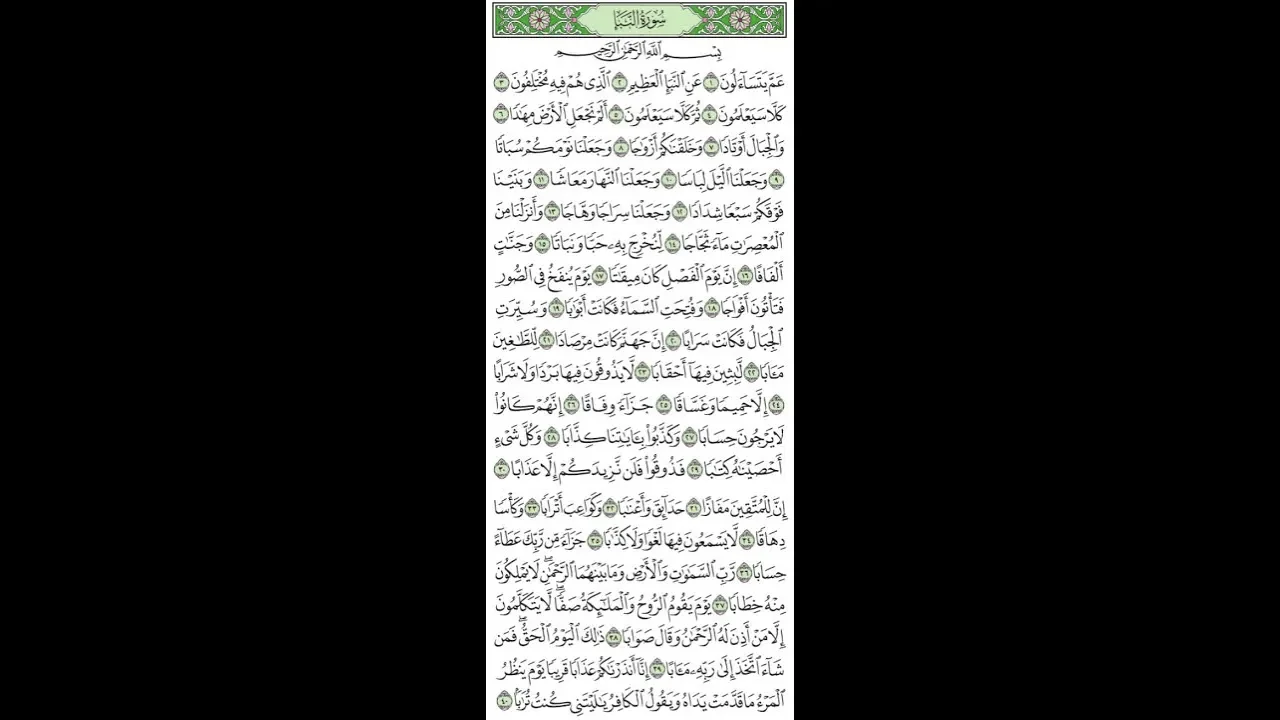 سُورَةُ النَّبَإِ
بِسْمِ اللَّهِ الرَّحْمَٰنِ الرَّحِيمِ
عَمَّ يَتَسَآءَلُونَ ١ عَنِ ٱلنَّبَإِ ٱلْعَظِيمِ ٢ ٱلَّذِى هُمْ فِيهِ مُخْتَلِفُونَ ٣
كَلَّا سَيَعْلَمُونَ ٤ ثُمَّ كَلَّا سَيَعْلَمُونَ ٥ أَلَمْ نَجْعَلِ ٱلْأَرْضَ مِهَٰدًا ٦
وَٱلْجِبَالَ أَوْتَادًا ٧ وَخَلَقْنَٰكُمْ أَزْوَٰجًا ٨ وَجَعَلْنَا نَوْمَكُمْ سُبَاتًا
٩ وَجَعَلْنَا ٱلَّيْلَ لِبَاسًا ١٠ وَجَعَلْنَا ٱلنَّهَارَ مَعَاشًا ١١ وَبَنَيْنَا
فَوْقَكُمْ سَبْعًا شِدَادًا ١٢ وَجَعَلْنَا سِرَاجًا وَهَّاجًا ١٣ وَأَنزَلْنَا مِنَ
ٱلْمُعْصِرَٰتِ مَآءً ثَجَّاجًا ١٤ لِّنُخْرِجَ بِهِۦ حَبًّا وَنَبَاتًا ١٥ وَجَنَّٰتٍ
أَلْفَافًا ١٦ إِنَّ يَوْمَ ٱلْفَصْلِ كَانَ مِيقَٰتًا ١٧ يَوْمَ يُنفَخُ فِى ٱلصُّورِ
فَتَأْتُونَ أَفْوَاجًا ١٨ وَفُتِحَتِ ٱلسَّمَآءُ فَكَانَتْ أَبْوَٰبًا ١٩ وَسُيِّرَتِ
ٱلْجِبَالُ فَكَانَتْ سَرَابًا ٢٠ إِنَّ جَهَنَّمَ كَانَتْ مِرْصَادًا ٢١ لِّلطَّٰغِينَ
مَـَٔابًا ٢٢ لَّٰبِثِينَ فِيهَآ أَحْقَابًا ٢٣ لَّا يَذُوقُونَ فِيهَا بَرْدًا وَلَا شَرَابًا
٢٤ إِلَّا حَمِيمًا وَغَسَّاقًا ٢٥ جَزَآءً وِفَاقًا ٢٦ إِنَّهُمْ كَانُوا۟
لَا يَرْجُونَ حِسَابًا ٢٧ وَكَذَّبُوا۟ بِـَٔايَٰتِنَا كِذَّابًا ٢٨ وَكُلَّ شَىْءٍ
أَحْصَيْنَٰهُ كِتَٰبًا ٢٩ فَذُوقُوا۟ فَلَن نَّزِيدَكُمْ إِلَّا عَذَابًا ٣٠
إِنَّ لِلْمُتَّقِينَ مَفَازًا ٣١ حَدَآئِقَ وَأَعْنَٰبًا ٣٢ وَكَوَاعِبَ أَتْرَابًا ٣٣ وَكَأْسًا
دِهَاقًا ٣٤ لَّا يَسْمَعُونَ فِيهَا لَغْوًا وَلَا كِذَّٰبًا ٣٥ جَزَآءً مِّن رَّبِّكَ عَطَآءً
حِسَابًا ٣٦ رَّبِّ ٱلسَّمَٰوَٰتِ وَٱلْأَرْضِ وَمَا بَيْنَهُمَا ٱلرَّحْمَٰنِ ۖ لَا يَمْلِكُونَ
مِنْهُ خِطَابًا ٣٧ يَوْمَ يَقُومُ ٱلرُّوحُ وَٱلْمَلَٰٓئِكَةُ صَفًّا ۖ لَّا يَتَكَلَّمُونَ
إِلَّا مَنْ أَذِنَ لَهُ ٱلرَّحْمَٰنُ وَقَالَ صَوَابًا ٣٨ ذَٰلِكَ ٱلْيَوْمُ ٱلْحَقُّ ۖ فَمَن
شَآءَ ٱتَّخَذَ إِلَىٰ رَبِّهِۦ مَـَٔابًا ٣٩ إِنَّآ أَنذَرْنَٰكُمْ عَذَابًا قَرِيبًا يَوْمَ يَنظُرُ
ٱلْمَرْءُ مَا قَدَّمَتْ يَدَاهُ وَيَقُولُ ٱلْكَافِرُ يَٰلَيْتَنِى كُنتُ تُرَٰبًۢا ٤٠